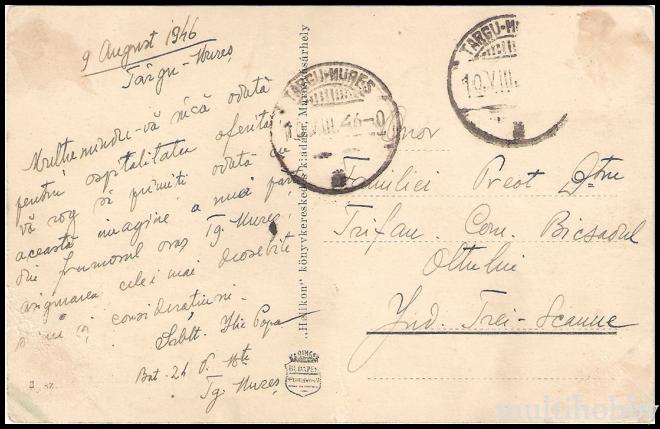 9 August 1946
Târgu-Mureș
Mulțumindu-vă încă odată
pentru ospitalitatea oferită
vă rog să primiți odată cu
această imagine a unei părți
din frumosul oraș Tg. Mureș,
asigurarea celei mai deosebite
stime și considerațiuni.
Sublt. Ilie Popa
Bat. 24 P. Mte
Tg. Mureș
3 47.
"Helikon" könyvkereskedés kiadása, Marosvásárhely
TÂRGU-MUREȘ
10.VIII.46-9
TÂRGU-MUREȘ
10.VIII.
Onor
Familiei Preot Dtru
Trifan. Com. Bicsadul
Oltului
Jud. Trei-Scaune
BUDAPEST
multihobby